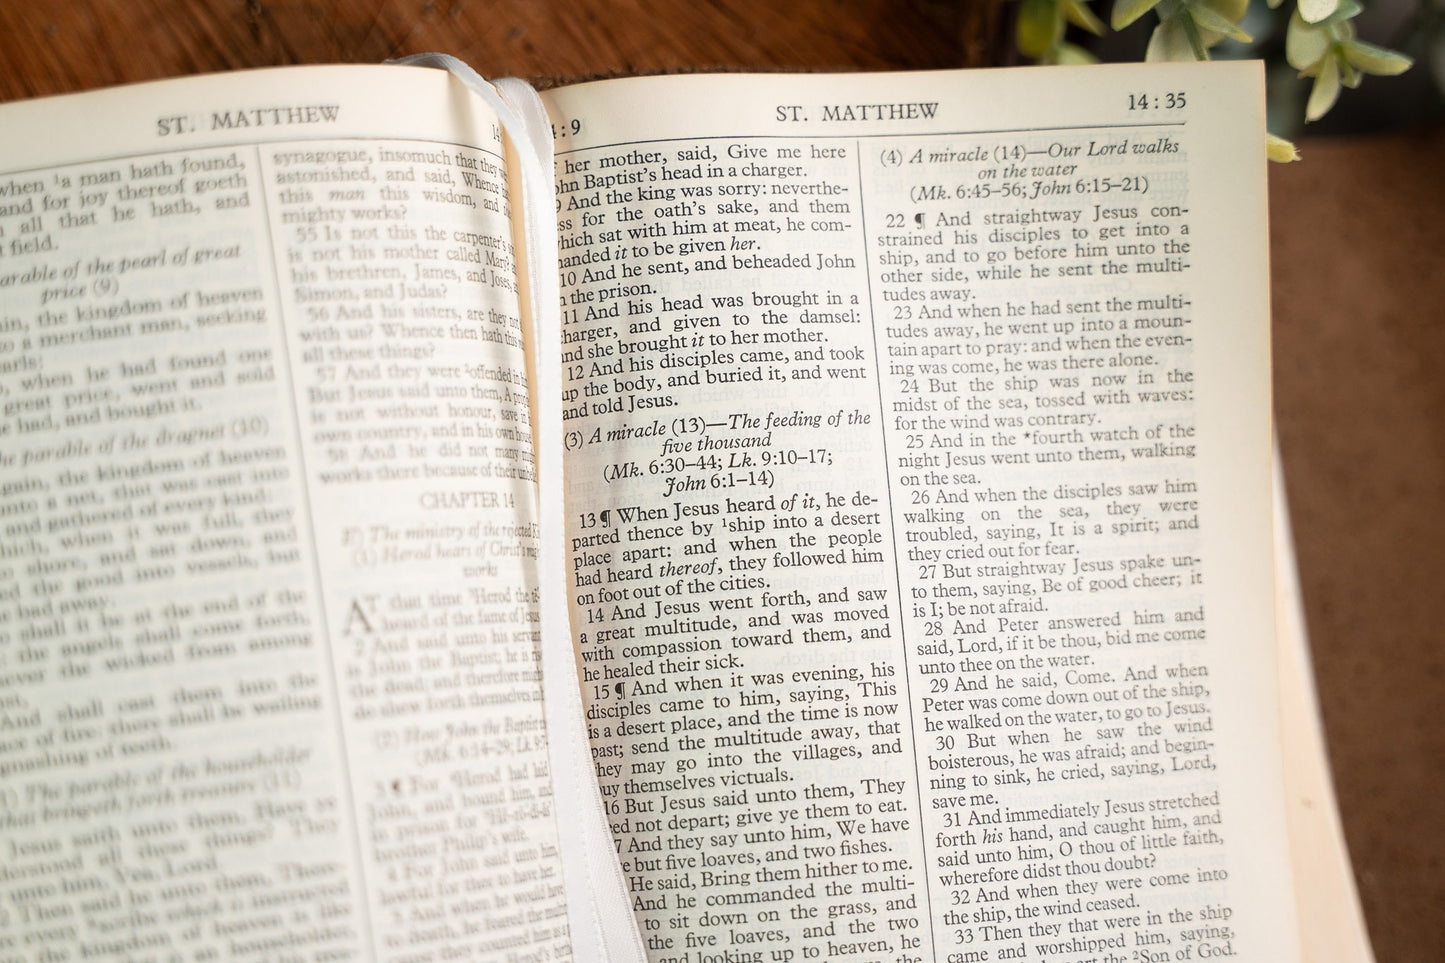 ST. MATTHEW
when ¹a man hath found,
and for joy thereof goeth
all that he hath, and
field.
arable of the pearl of great
price (9)
the kingdom of heaven
a merchant man, seeking
when he had found one
great price, went and sold
he had, and bought it.
parable of the dragnet (10)
the kingdom of heaven
unto a net, that was cast into
and gathered of every kind:
when it was full, they
shore, and sat down, and
the good into vessels, but
bad away.
shall it be at the end of the
the angels shall come forth,
the wicked from among
And shall cast them into the
of fire: there shall be wailing
gnashing of teeth.
The parable of the householder
that bringeth forth treasure (11)
Jesus saith unto them, Have ye
all these things? They
unto him, Yea, Lord.
Then said he unto them,
synagogue, insomuch that they
astonished, and said, Whence
this man this wisdom, and
mighty works?
55 Is not this the carpenter's
is not his mother called Mary?
his brethren, James, and Joses,
Simon, and Judas?
56 And his sisters, are they
with us? Whence then hath this
all these things?
57 And they were ²offended in
But Jesus said unto them, A
is not without honour, save in
own country, and in his own
58 And he did not many
works there because of their
CHAPTER 14
The ministry of the rejected
(1) Herod hears of Christ's
works
AT that time Herod the
heard of the fame of
2 And said unto his
is John the Baptist; he is
the dead; and therefore
do shew forth themselves
(2) How John the Baptist
3 ¶ For Herod had
John, and bound him, and
in prison for
brother wife.
4 For John said unto him,
lawful for thee to have her.
5 And when he would have
to death, he feared the
:9
ST. MATTHEW
14:35
her mother, said, Give me here
Baptist's head in a charger.
And the king was sorry: neverthe-
for the oath's sake, and them
which sat with him at meat, he com-
manded it to be given her.
10 And he sent, and beheaded John
the prison.
11 And his head was brought in a
charger, and given to the damsel:
and she brought it to her mother.
12 And his disciples came, and took
up the body, and buried it, and went
and told Jesus.
(3) A miracle (13)—The feeding of the
five thousand
(Mk. 6:30–44; Lk. 9:10–17;
John 6:1–14)
13 ¶ When Jesus heard of it, he de-
parted thence by ¹ship into a desert
place apart: and when the people
had heard thereof, they followed him
on foot out of the cities.
14 And Jesus went forth, and saw
a great multitude, and was moved
with compassion toward them, and
he healed their sick.
15 ¶ And when it was evening, his
disciples came to him, saying, This
is a desert place, and the time is now
past; send the multitude away, that
they may go into the villages, and
buy themselves victuals.
16 But Jesus said unto them, They
need not depart; give ye them to eat.
7 And they say unto him, We have
but five loaves, and two fishes.
He said, Bring them hither to me.
And he commanded the multi-
to sit down on the grass, and
the five loaves, and the two
and looking up to heaven, he
the
(4) A miracle (14)—Our Lord walks
on the water
(Mk. 6:45–56; John 6:15–21)
22 ¶ And straightway Jesus con-
strained his disciples to get into a
ship, and to go before him unto the
other side, while he sent the multi-
tudes away.
23 And when he had sent the multi-
tudes away, he went up into a moun-
tain apart to pray: and when the even-
ing was come, he was there alone.
24 But the ship was now in the
midst of the sea, tossed with waves:
for the wind was contrary.
25 And in the *fourth watch of the
night Jesus went unto them, walking
on the sea.
26 And when the disciples saw him
walking on the sea, they were
troubled, saying, It is a spirit; and
they cried out for fear.
27 But straightway Jesus spake un-
to them, saying, Be of good cheer; it
is I; be not afraid.
28 And Peter answered him and
said, Lord, if it be thou, bid me come
unto thee on the water.
29 And he said, Come. And when
Peter was come down out of the ship,
he walked on the water, to go to Jesus.
30 But when he saw the wind
boisterous, he was afraid; and begin-
ning to sink, he cried, saying, Lord,
save me.
31 And immediately Jesus stretched
forth his hand, and caught him, and
said unto him, O thou of little faith,
wherefore didst thou doubt?
32 And when they were come into
the ship, the wind ceased.
33 Then they that were in the ship
came and worshipped him, saying,
the ²Son of God.